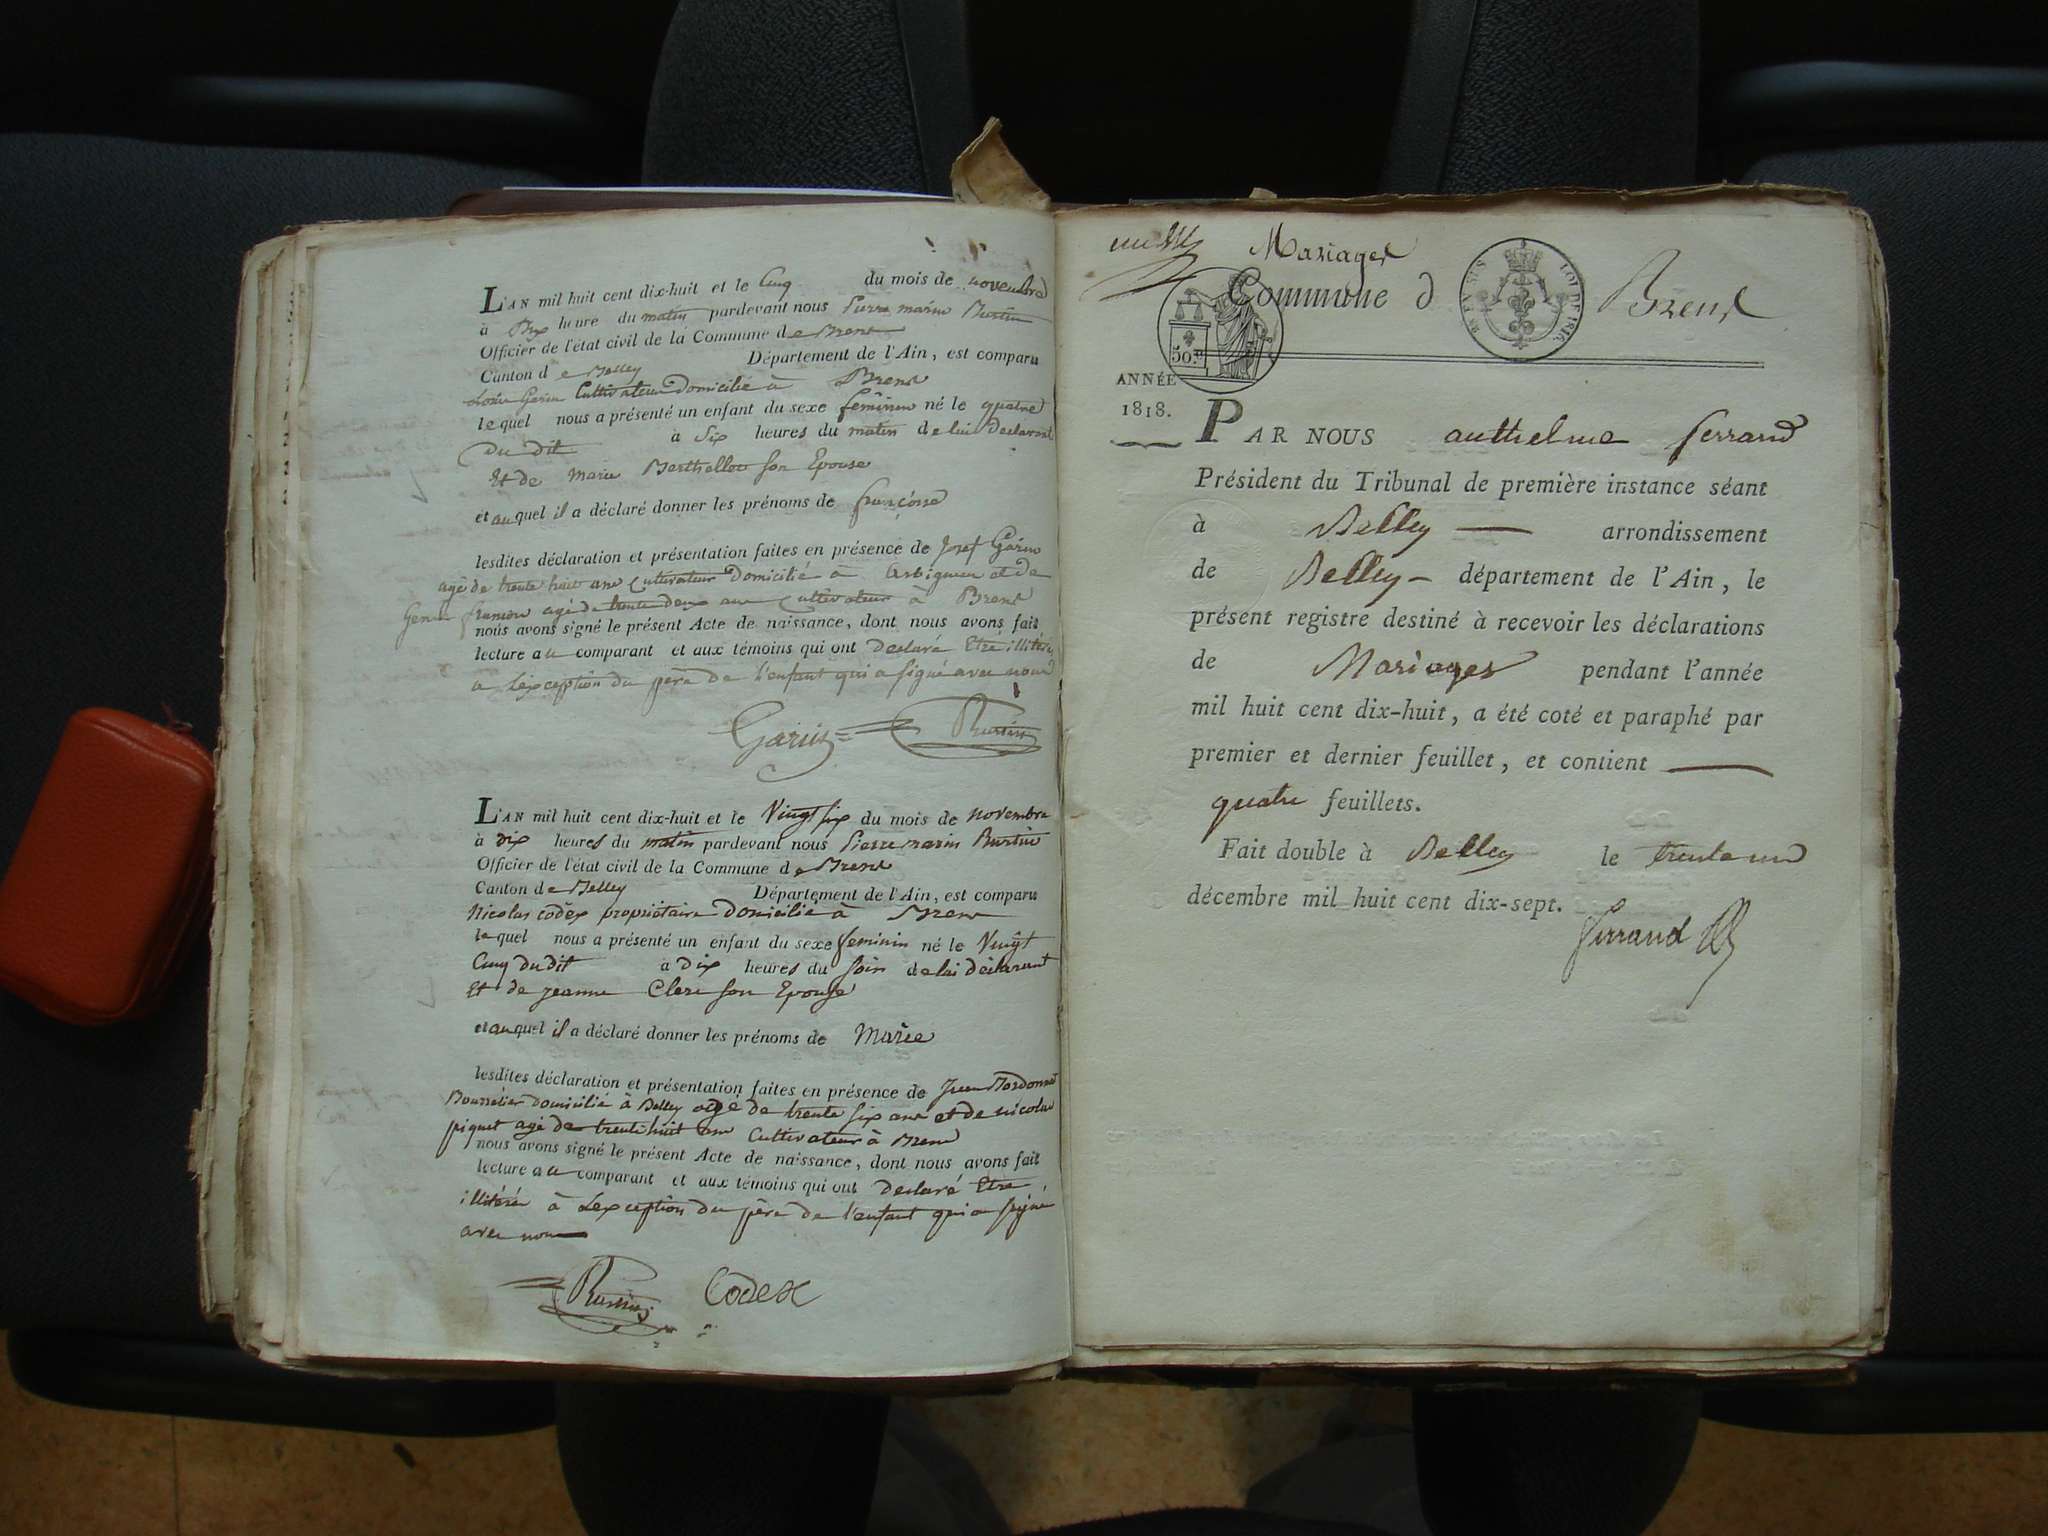 L'AN mil huit cent dix-huit et le Cinq du mois de novembre
à Dix heure du matin pardevant nous Pierre marin Burtin
Officier de l'état civil de la Commune de Brens
Canton de Belley Département de l'Ain, est comparu
Louis Garin Cultivateur Domicilié à Brens
lequel nous a présenté un enfant du sexe féminin né le quatre
du dit à Six heures du matin de lui Declarant
Et de Marie Berthellot son Epouse
et auquel il a déclaré donner les prénoms de françoise
lesdites déclaration et présentation faites en présence de Josef Garin
agé de trente huit ans Cultivateur Domicilié à Arbignieu et de
françois agé de trente deux ans Cultivateur à Brens
nous avons signé le présent Acte de naissance, dont nous avons fait
lecture au comparant et aux témoins qui ont declaré Etre illitérés
a Lexception du père de l'enfant qui a signé avec nous
Garin Burtin
L'AN mil huit cent dix-huit et le Vingt six du mois de novembre
à dix heures du matin pardevant nous Pierre marin Burtin
Officier de l'état civil de la Commune de Brens
Canton de Belley Département de l'Ain, est comparu
Nicolas Codex propriétaire Domicilié à Brens
lequel nous a présenté un enfant du sexe feminin né le Vingt
Cinq du dit à dix heures du soir de lui déclarant
Et de jeanne Clerc son Epouse
et auquel il a déclaré donner les prénoms de Marie
lesdites déclaration et présentation faites en présence de Jean
Bourrelier domicilié à Belley agé de trente six ans et de nicolas
piquet agé de trente huit ans Cultivateur à Brens
nous avons signé le présent Acte de naissance, dont nous avons fait
lecture au comparant et aux témoins qui ont declaré Etre
illitérés à Lexception du père de l'enfant qui a signé
avec nous
Burtin Codex
Mariages
Commune d Brens
50.c
ANNÉE
1818.
PAR NOUS anthelme ferrand
Président du Tribunal de première instance séant
à Belley arrondissement
de Belley département de l'Ain, le
présent registre destiné à recevoir les déclarations
de Mariages pendant l'année
mil huit cent dix-huit, a été coté et paraphé par
premier et dernier feuillet, et contient
quatre feuillets.
Fait double à Belley le trente un
décembre mil huit cent dix-sept.
ferrand